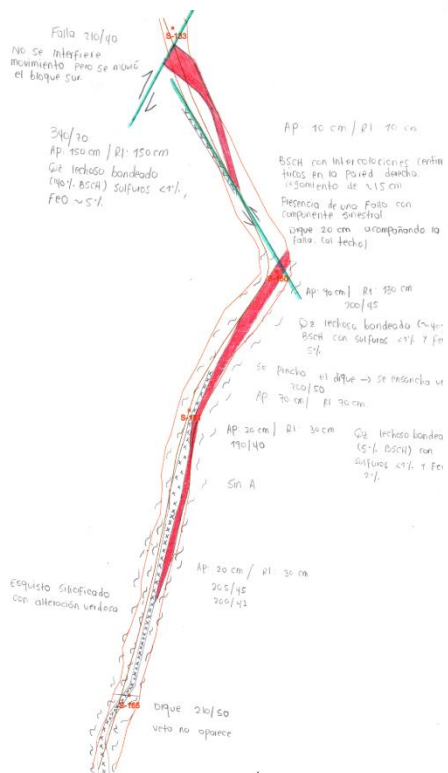 Falla 210/40
No se interfiere
movimiento pero se movió
el bloque sur.
340/70
Ap: 150 cm / Rl: 150 cm
Qz lechoso bandeado
(40% BSCH) sulfuros <1%,
FeO ~5%
Ap: 10 cm / Rl: 10 cm
BSCH con intercalaciones
en la pared derecha
de ~15 cm
Presencia de una falla con
componente sinestral
Dique 20 cm acompañando la
falla. (al techo)
Ap: 90 cm / Rl: 130 cm
200/45
Qz lechoso bandeado
BSCH con sulfuros <1% y
5%
Se pincho el dique → se ensancha
200/50
Ap: 70 cm / Rl: 70 cm
Ap: 20 cm / Rl: 30 cm
190/40
Qz lechoso
(5% BSCH) con
sulfuros <1% y
2%
Sin A
Ap: 20 cm / Rl: 30 cm
205/45
200/43
Esquisto silicificado
con alteración verdosa
S-165
Dique 210/50
veta no aparece